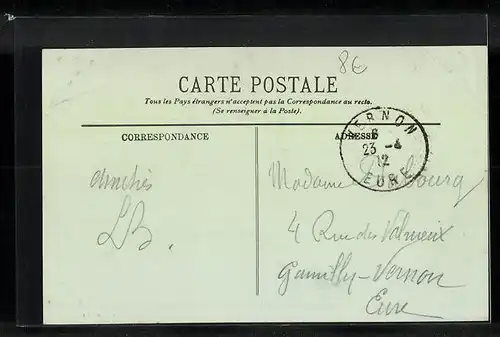 8€
CARTE POSTALE
Tous les Pays étrangers n'acceptent pas la Correspondance au recto.
(Se renseigner à la Poste).
CORRESPONDANCE
ADRESSE
VERNON
6
23 -4
12
EURE
Amitiés
LB.
Madame
4 Rue des
Gamilly-Vernon
Eure